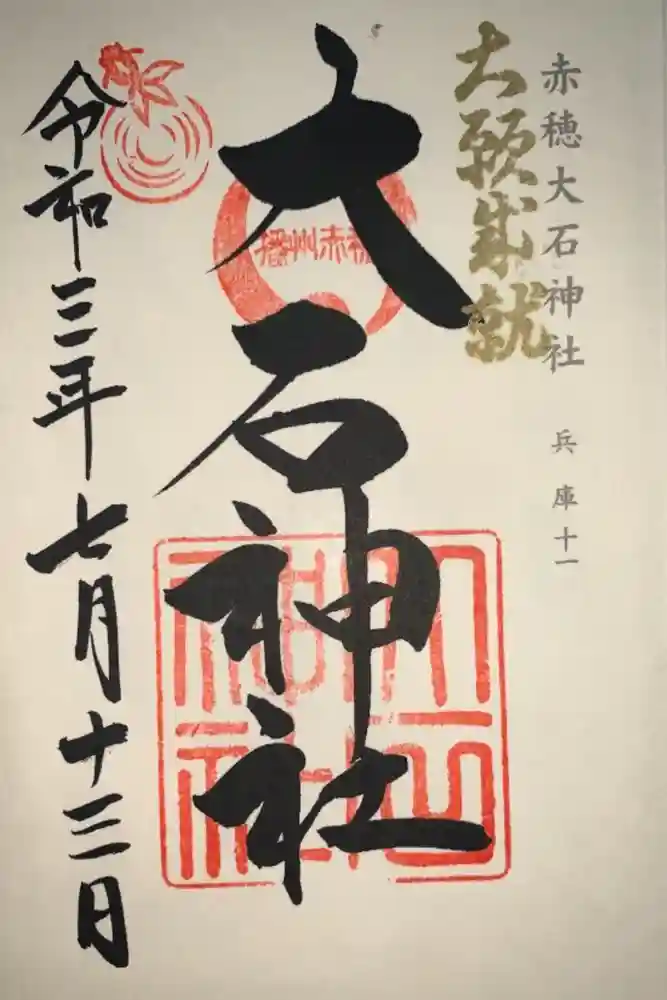 赤穂大石神社 兵庫十一
大願成就
大石神社
播州赤穂
大石神社
令和三年七月十三日